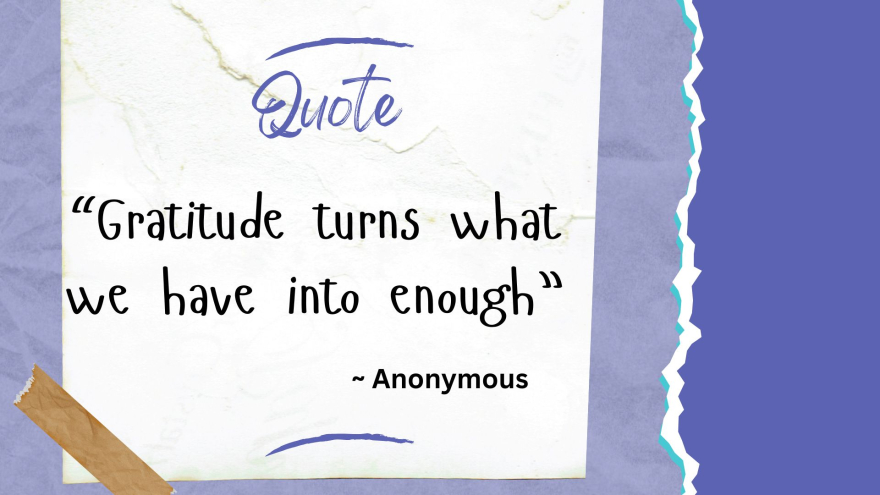 Quote
“Gratitude turns what
we have into enough”
~ Anonymous